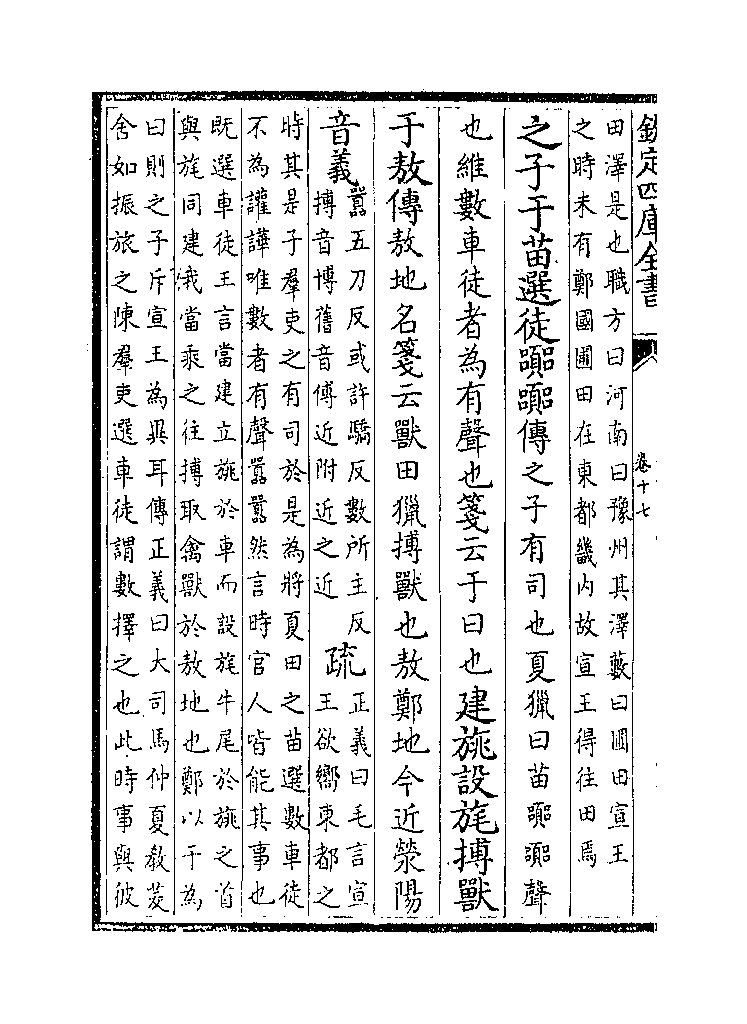 欽定四庫全書
卷十七
田澤是也職方曰河南曰豫州其澤藪曰圃田宣王
之時未有鄭國圃田在東都畿內故宣王得往田焉
之子于苗選徒囂囂傳之子有司也夏獵曰苗囂囂聲
也維數車徒者為有聲也箋云于曰也建旐設旄搏獸
于敖傳敖地名箋云獸田獵搏獸也敖鄭地今近滎陽
音義
囂五刀反或許驕反數所主反
搏音博舊音傅近附近之近
疏
正義曰毛言宣
王欲嚮東都之
時其是子羣吏之有司於是為將夏田之苗選數車徒
不為讙譁唯數者有聲囂囂然言時官人皆能其事也
既選車徒王言當建立旐於車而設旄牛尾於旐之首
與旄同建我當乘之往搏取禽獸於敖地也鄭以于為
曰則之子斥宣王為異耳傳正義曰大司馬仲夏教茇
舍如振旅之陳羣吏選車徒謂數擇之也此時事與彼